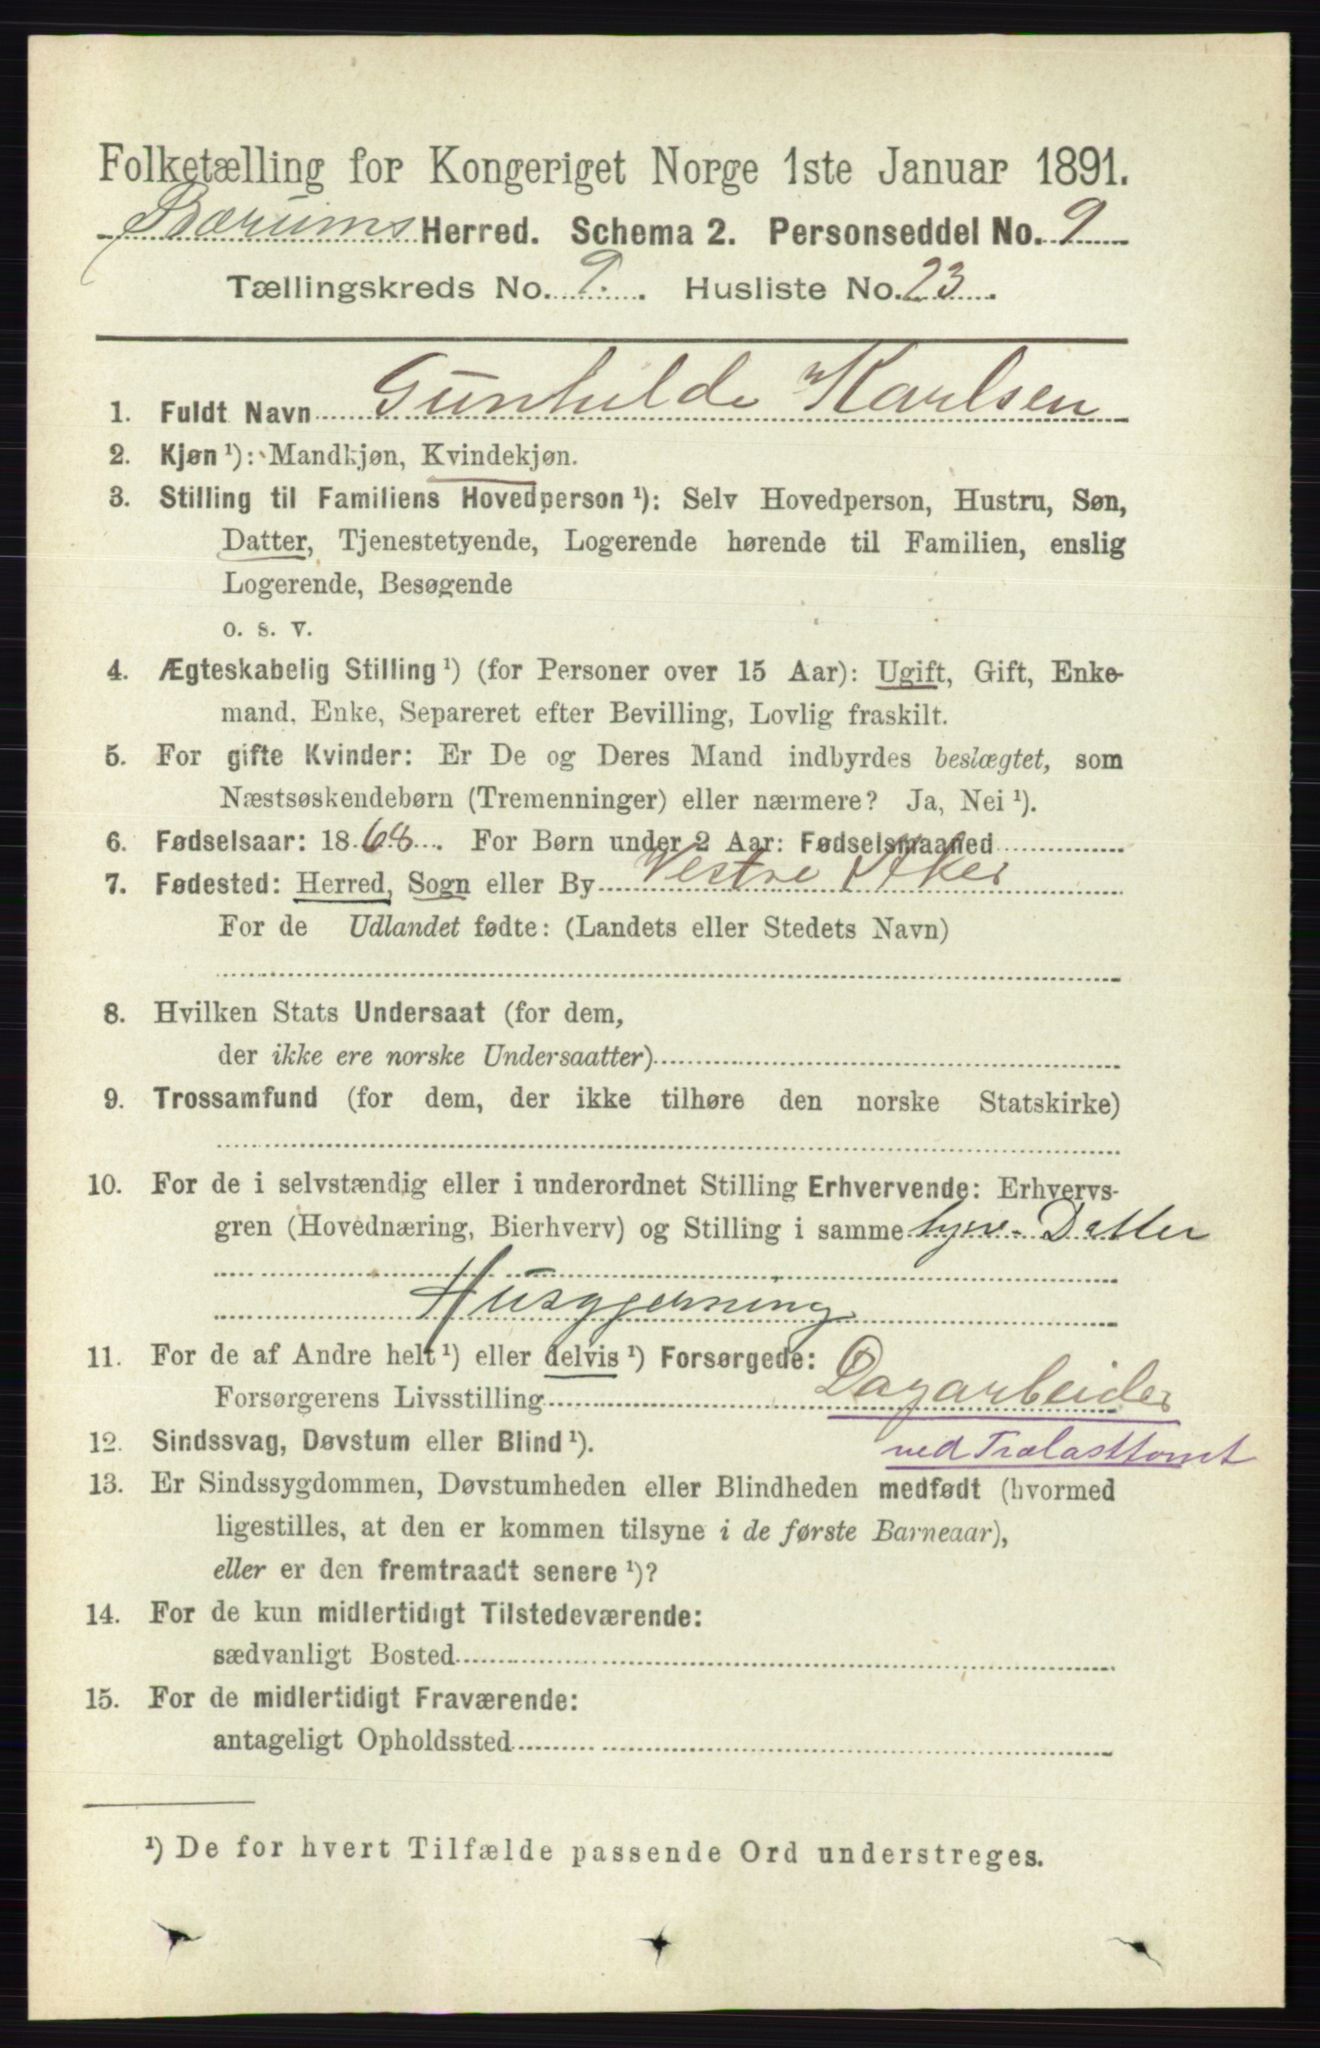 Folketælling for Kongeriget Norge 1ste Januar 1891.
Bærums Herred. Schema 2. Personseddel No. 9
Tællingskreds No. 9. Husliste No. 23.
1. Fuldt Navn Gunhilde Karlsen
2. Kjøn ¹): Mandkjøn, Kvindekjøn.
3. Stilling til Familiens Hovedperson ¹): Selv Hovedperson, Hustru, Søn,
Datter, Tjenestetyende, Logerende hørende til Familien, enslig
Logerende, Besøgende
o. s. v.
4. Ægteskabelig Stilling ¹) (for Personer over 15 Aar): Ugift, Gift, Enke-
mand, Enke, Separeret efter Bevilling, Lovlig fraskilt.
5. For gifte Kvinder: Er De og Deres Mand indbyrdes beslægtet, som
Næstsøskendebørn (Tremenninger) eller nærmere? Ja, Nei ¹).
6. Fødselsaar: 1868. For Børn under 2 Aar: Fødselsmaaned
7. Fødested: Herred, Sogn eller By Vestre Aker
For de Udlandet fødte: (Landets eller Stedets Navn)
8. Hvilken Stats Undersaat (for dem,
der ikke ere norske Undersaatter)
9. Trossamfund (for dem, der ikke tilhøre den norske Statskirke)
10. For de i selvstændig eller i underordnet Stilling Erhvervende: Erhvervs-
gren (Hovednæring, Bierhverv) og Stilling i samme hjm. Datter
Husgjerning
11. For de af Andre helt ¹) eller delvis ¹) Forsørgede:
Forsørgerens Livsstilling Dagarbeider
ved Trælasttomt
12. Sindssvag, Døvstum eller Blind ¹).
13. Er Sindssygdommen, Døvstumheden eller Blindheden medfødt (hvormed
ligestilles, at den er kommen tilsyne i de første Barneaar),
eller er den fremtraadt senere ¹)?
14. For de kun midlertidigt Tilstedeværende:
sædvanligt Bosted
15. For de midlertidigt Fraværende:
antageligt Opholdssted
¹) De for hvert Tilfælde passende Ord understreges.